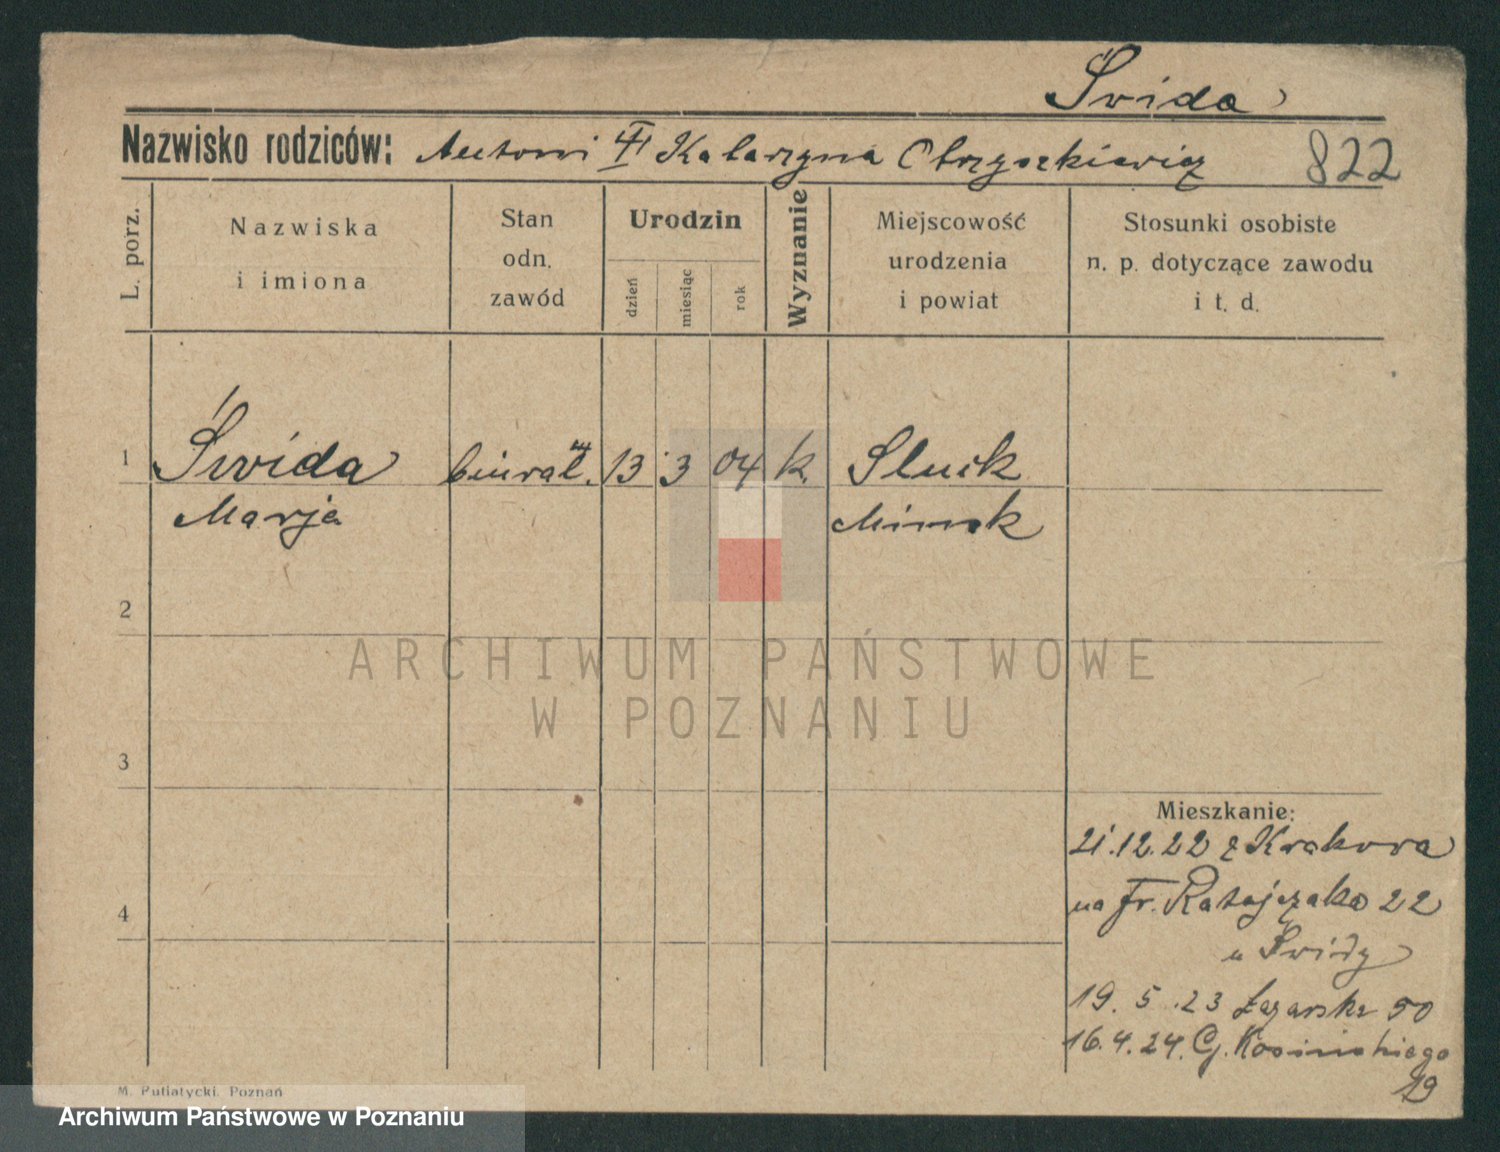 Świda
Nazwisko rodziców: Antoni Katarzyna 822
L. porz.
Nazwiska
i imiona
Stan
odn.
zawód
Urodzin
dzień
miesiąc
rok
Wyznanie
Miejscowość
urodzenia
i powiat
Stosunki osobiste
n. p. dotyczące zawodu
i t. d.
1 Świda 13 3 04 k. Sluck
Marja Minsk
2
ARCHIWUM PAŃSTWOWE
W POZNANIU
3
Mieszkanie:
21.12.22 z Krakowa
4
na Fr. Ratajczaka 22
u Świdy
19. 5. 23 Łazarska 50
16.4.24. G. Kosińskiego
19
M. Putiatycki, Poznań
Archiwum Państwowe w Poznaniu